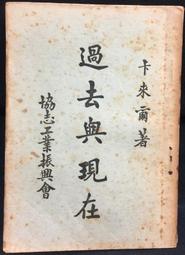 卡來爾著
過去與現在
協志工業振興會